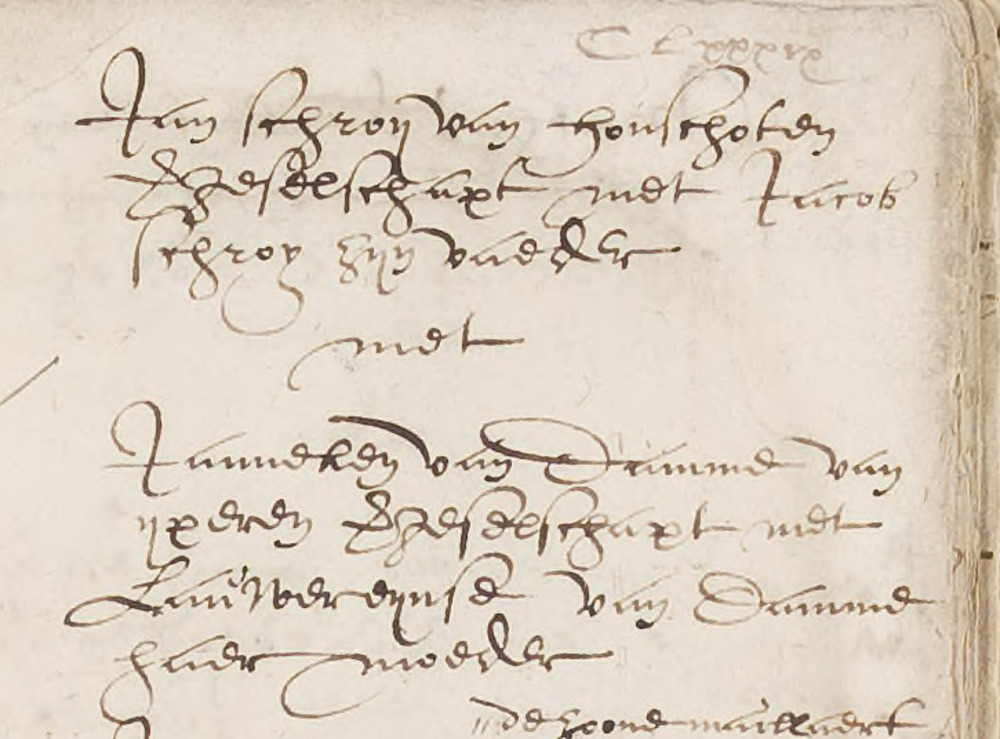 CLxxxix
Jan schroy van honschoten
Gheselschapt met Jacob
schroy zyn vaeder
met
Janneken van Damme van
yperen Gheselschapt met
Lauwereynse van Damme
haer moeder
de zoone maillaert